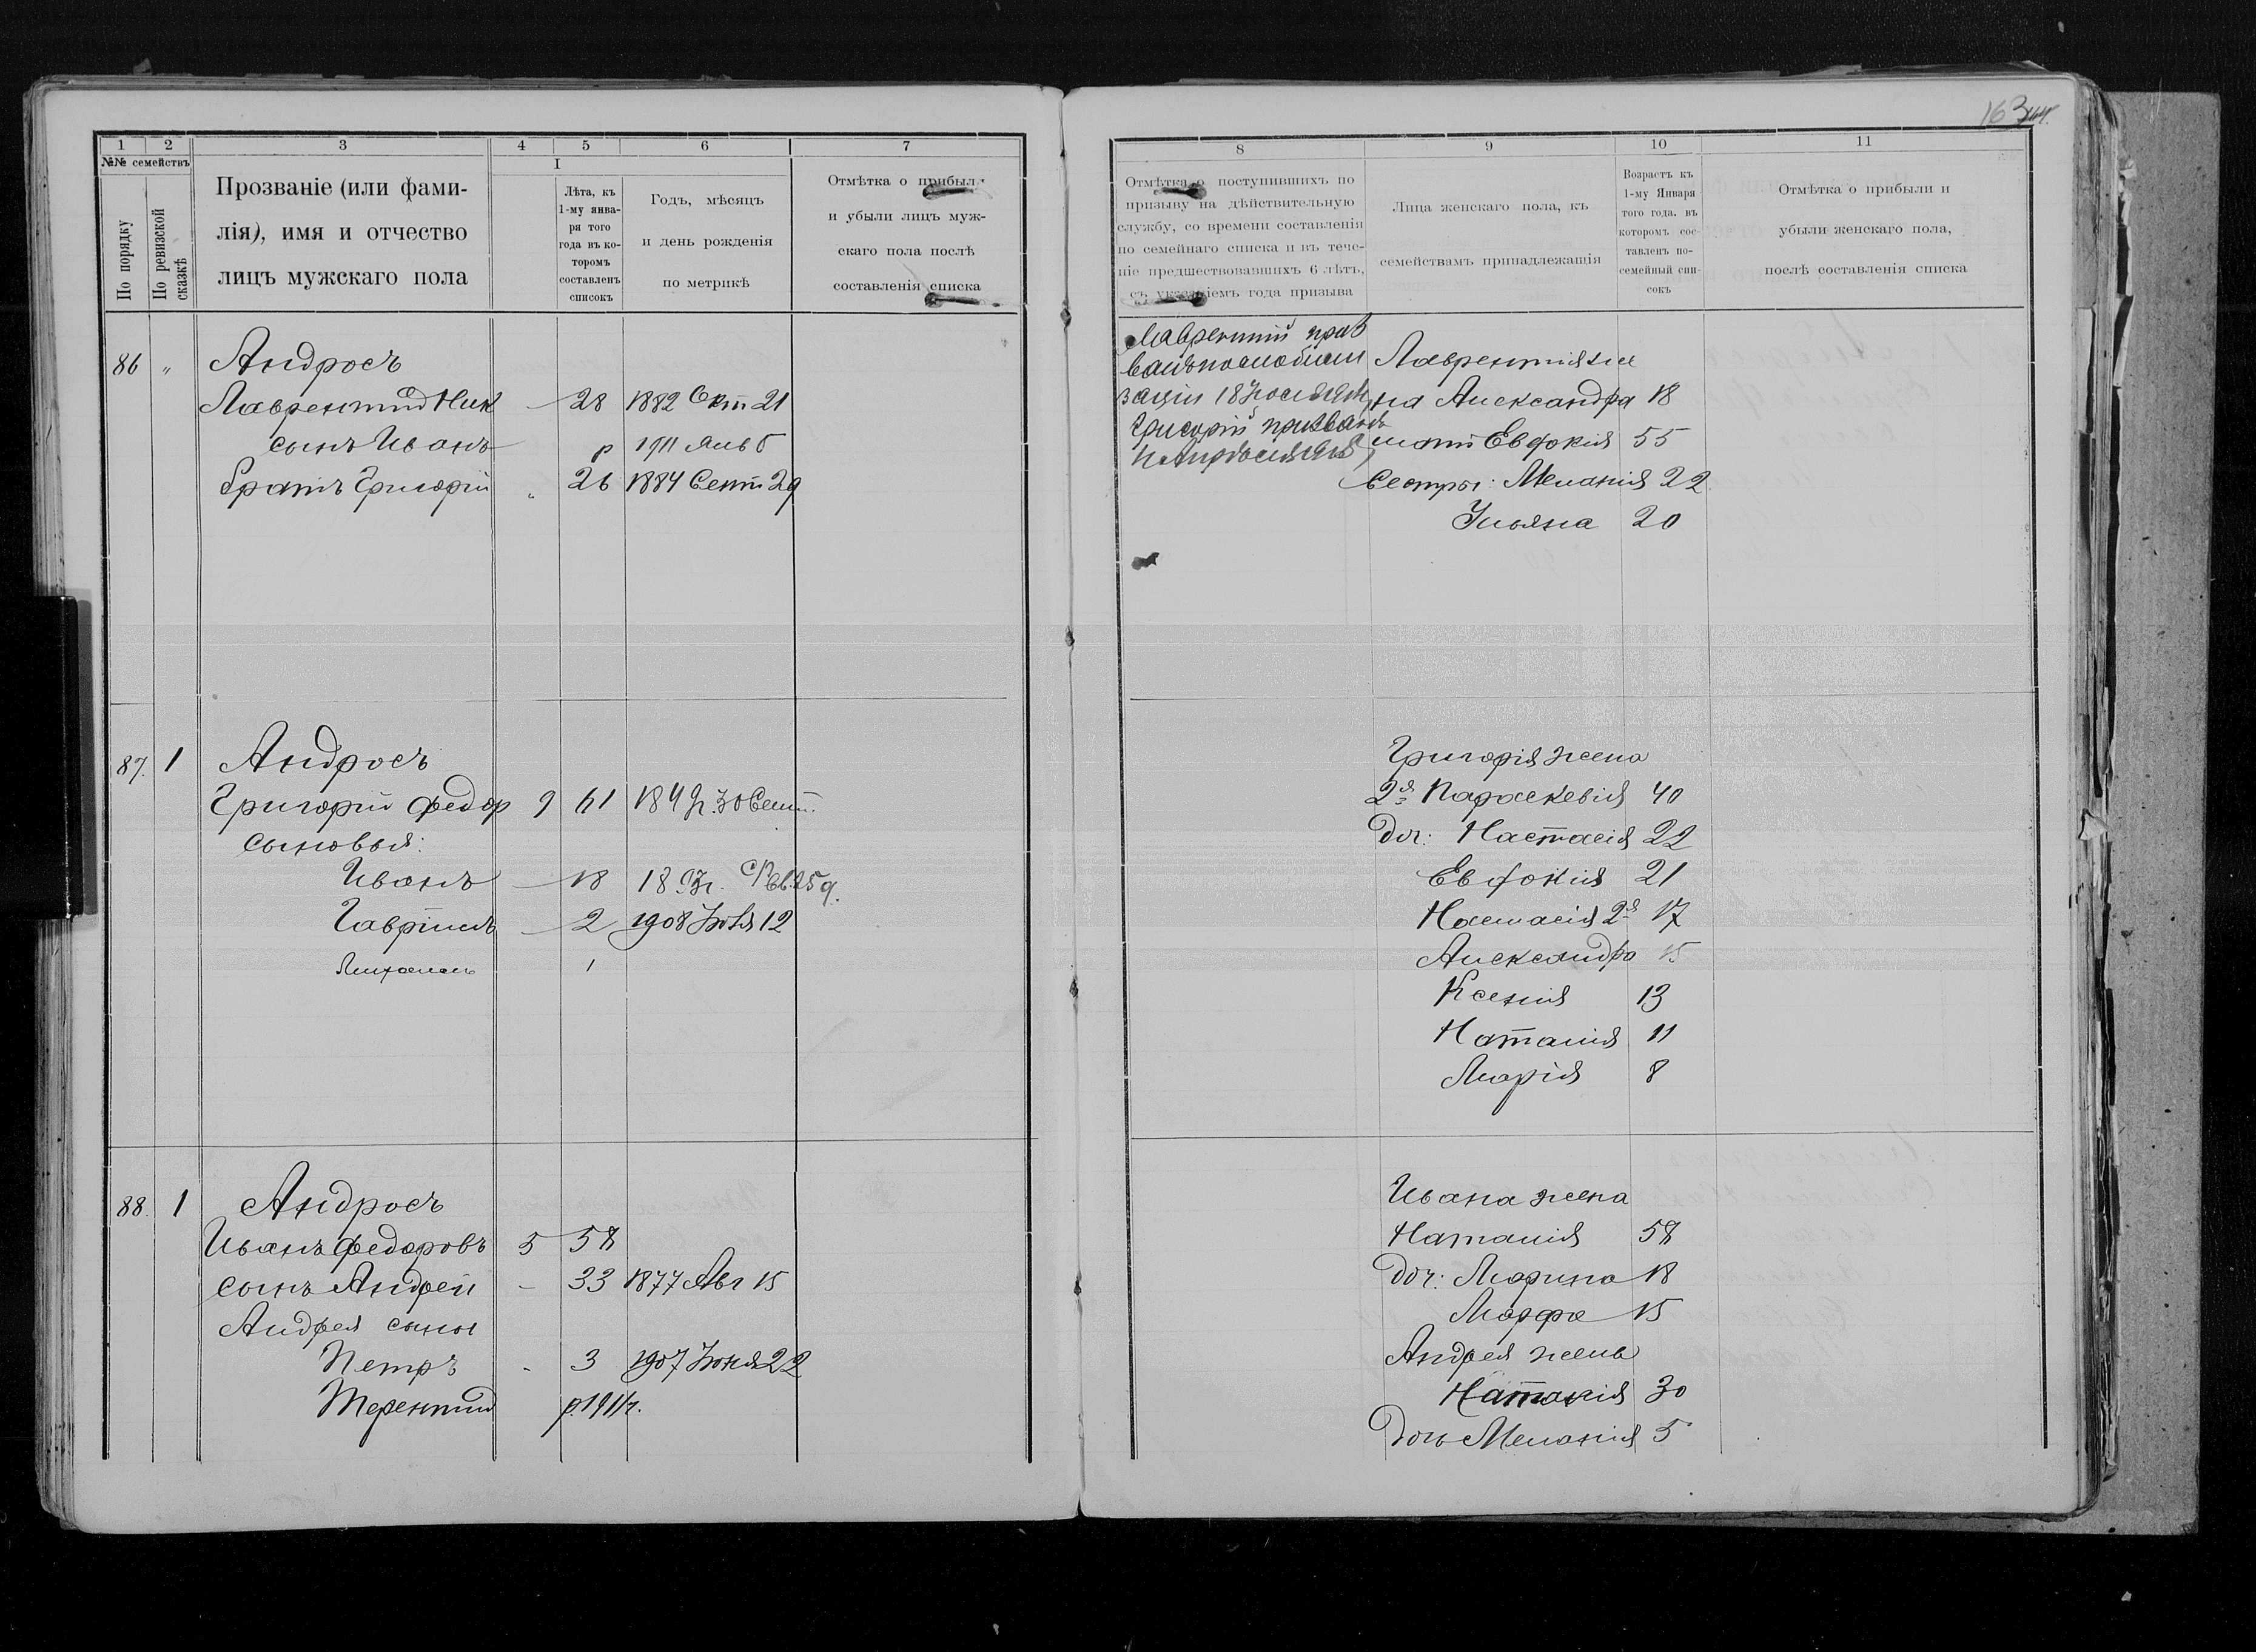 163
1
2
3
4
5
6
7
№№ семействъ
По порядку
По ревизской сказкѣ
Прозваніе (или фами-
лія), имя и отчество
лицъ мужскаго пола
I
Лѣта, къ
1-му янва-
ря того
года въ ко-
торомъ
составленъ
списокъ
Годъ, мѣсяцъ
и день рожденія
по метрикѣ
Отмѣтка о прибыли
и убыли лицъ муж-
скаго пола послѣ
составленія списка
86 „ Андросъ
Лаврентій Ник - 28 1882 Окт 21
сынъ Иванъ р 1911 Янв 5
братъ Григорій „ 26 1884 Сент 29
87. 1 Андросъ
Григорій Федор 9 61 1849г. 30 Сент.
сыновья:
Иванъ - 18
Гавріилъ - 2 1908 Іюля 12
Михаилъ 1
88. 1 Андросъ
Иванъ Федоровъ 5 58
сынъ Андрей - 33 1877 Авг 15
Андрея сыны
Петръ - 3 1907 Іюня 22
Терентій р. 1911г.
8
9
10
11
Отмѣтка о поступившихъ по
призыву на дѣйствительную
службу, со времени составленія
по семейнаго списка и въ тече-
ніе предшествовавшихъ 6 лѣтъ,
съ указаніемъ года призыва
Лица женскаго пола, къ
семействамъ принадлежащія
Возрастъ къ
1-му Января
того года. въ
которомъ сос-
тавленъ по-
семейный спи-
сокъ
Отмѣтка о прибыли и
убыли женскаго пола,
послѣ составленія списка
Лаврентій приз
ванъ по мобили
заціи 18 Іюля
Григорій призванъ
Лаврентія же
на Александра 18
мать Евдокія 55
Сестры: Меланія 22
Ульяна 20
Григорія жена
2я Параскевія 40
Доч: Настасія 22
Евдокія 21
Настасія 2я 17
Александра 15
Ксенія 13
Наталія 11
Марія 8
Ивана жена
Наталія 58
Доч: Марина 18
Марфа 15
Андрея жена
Наталія 30
Дочь Меланія 5